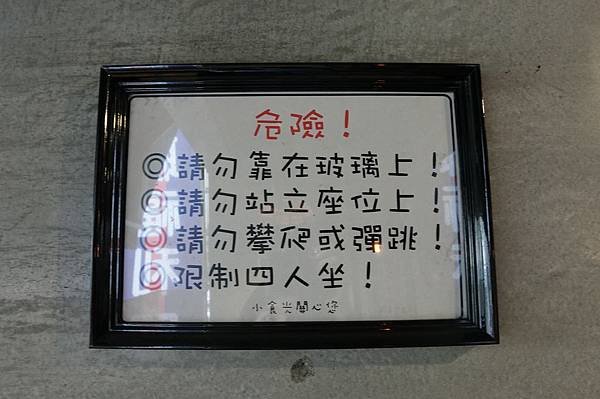 危險！
◎請勿靠在玻璃上！
◎請勿站立座位上！
◎請勿攀爬或彈跳！
◎限制四人坐！
小食光關心您